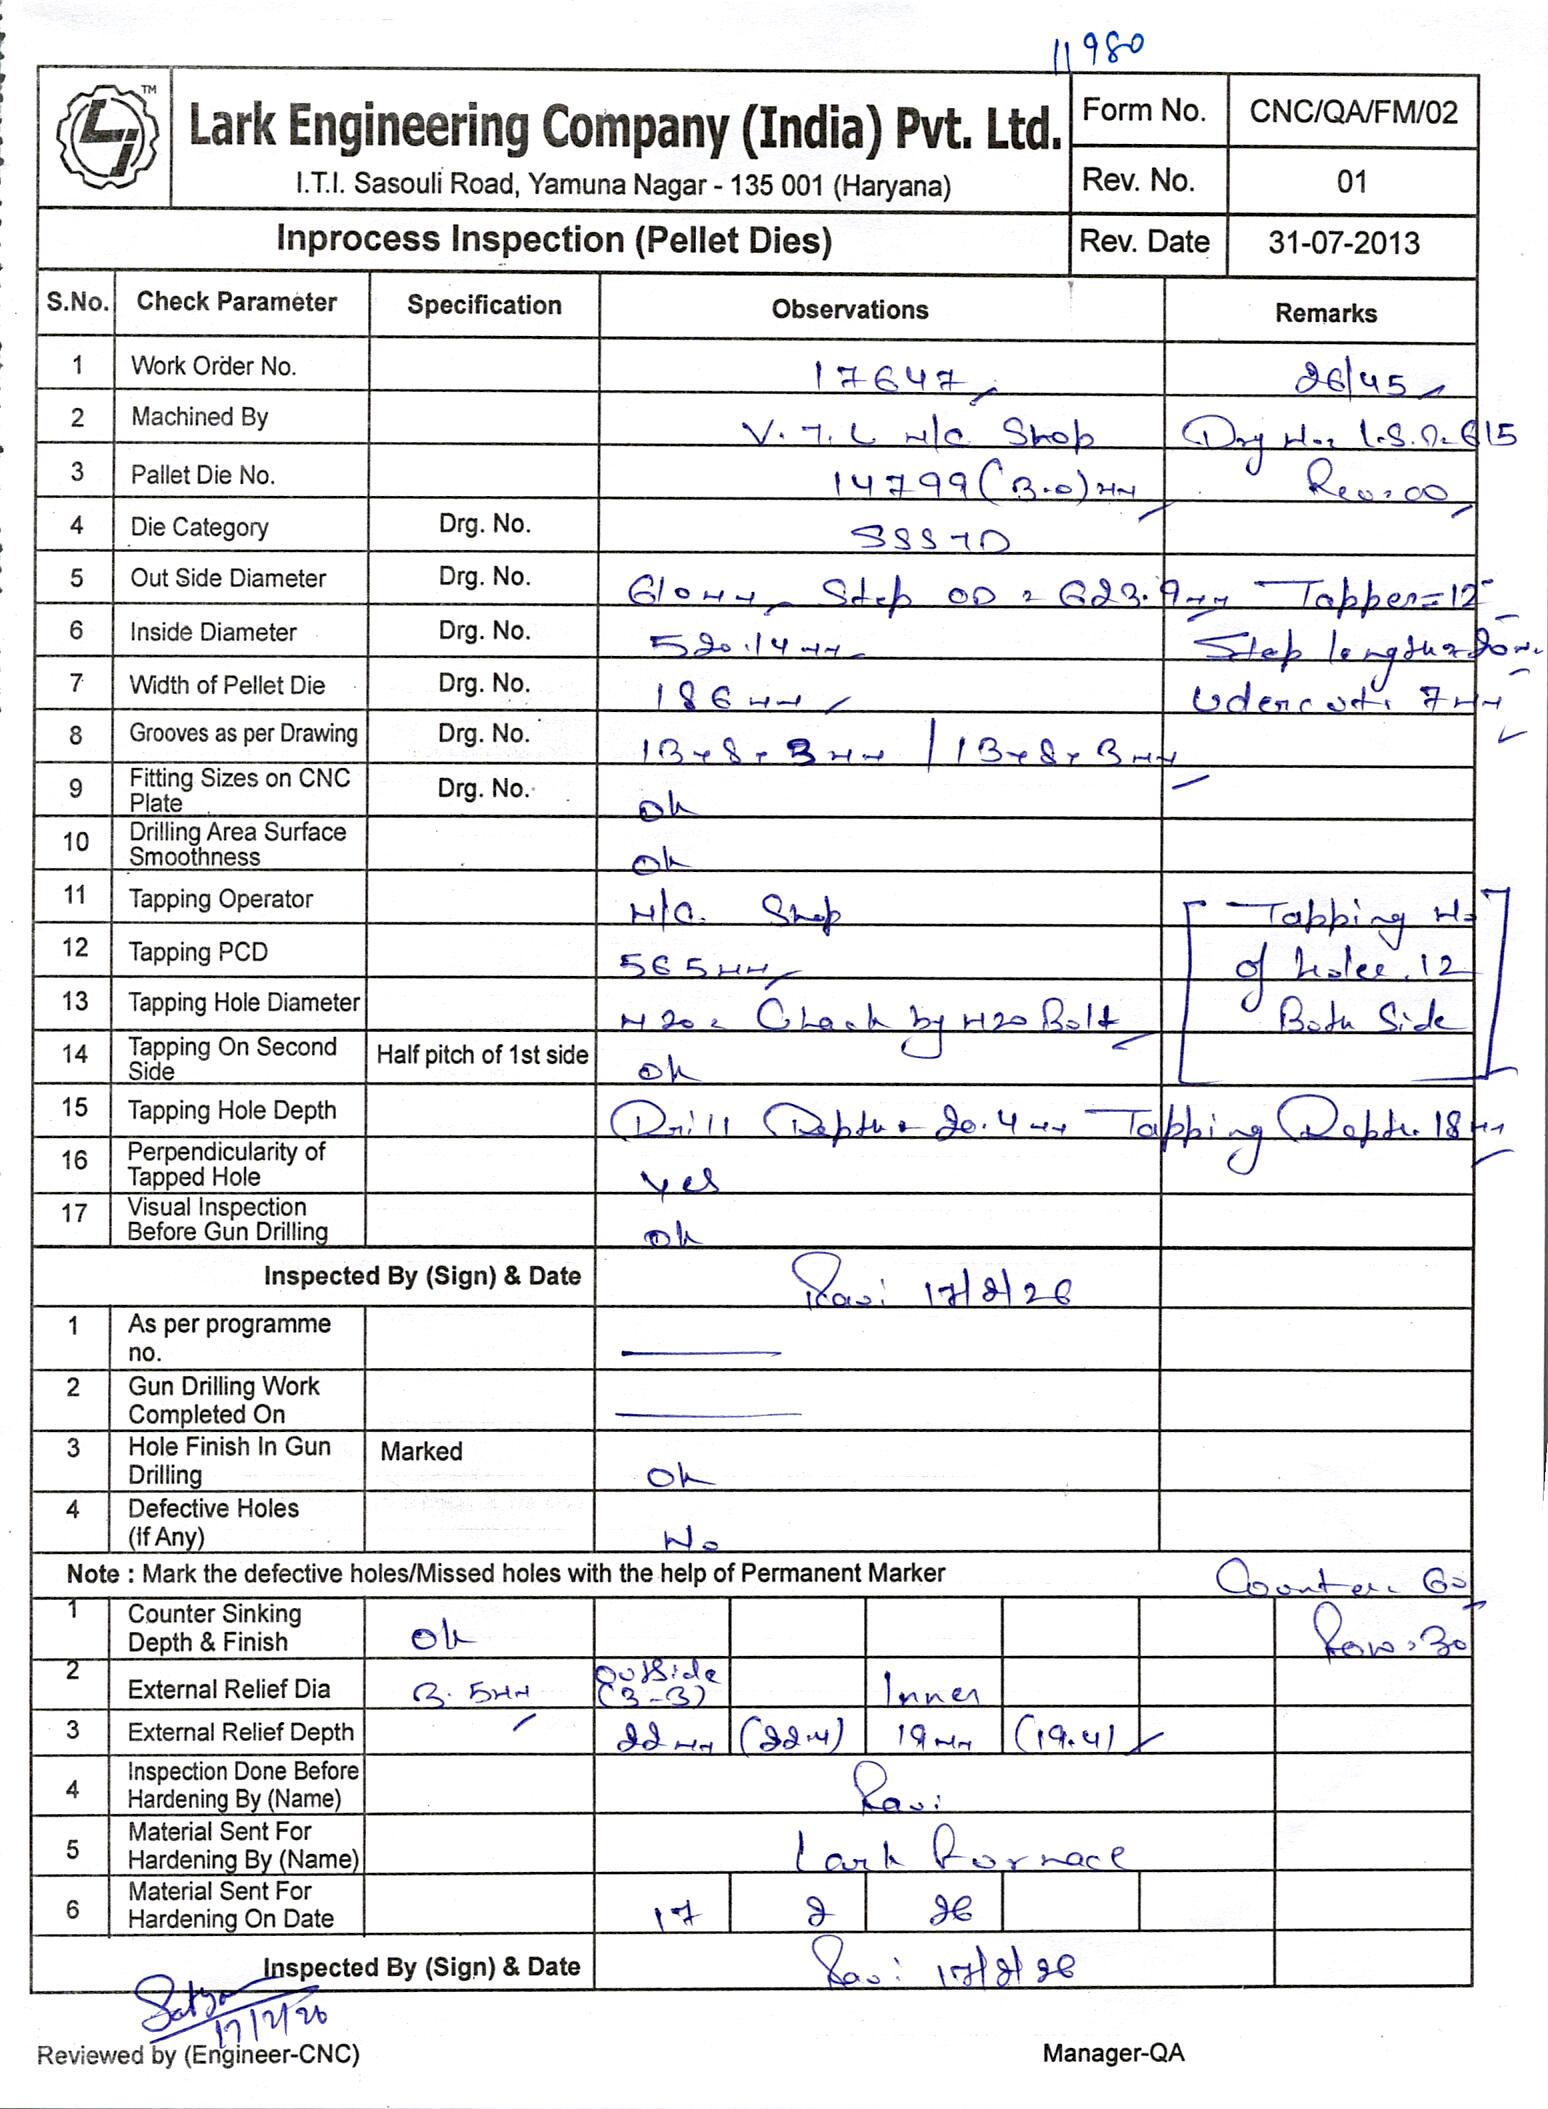 11980
TM
Lark Engineering Company (India) Pvt. Ltd.
I.T.I. Sasouli Road, Yamuna Nagar - 135 001 (Haryana)
Form No. CNC/QA/FM/02
Rev. No. 01
Inprocess Inspection (Pellet Dies) Rev. Date 31-07-2013
S.No. Check Parameter Specification Observations Remarks
1 Work Order No. 17647 26/45
2 Machined By V.T.L M/C Shop Drg No: L.S.D-615
3 Pallet Die No. 14799 (3.0)mm Rev:00
4 Die Category Drg. No. SSS7D
5 Out Side Diameter Drg. No. 610mm Step OD = 623.9mm Tapper=12°
6 Inside Diameter Drg. No. 520.14mm Step length=20mm
7 Width of Pellet Die Drg. No. 186mm Udercut: 7mm
8 Grooves as per Drawing Drg. No. 13x8x3mm / 13x8x3mm
9 Fitting Sizes on CNC Plate Drg. No. Ok
10 Drilling Area Surface Smoothness Ok
11 Tapping Operator M/C. Shop Tapping No
12 Tapping PCD 565mm of holes.12
13 Tapping Hole Diameter M20 = Check by M20 Bolt Both Side
14 Tapping On Second Side Half pitch of 1st side Ok
15 Tapping Hole Depth Drill Depth = 20.4mm Tapping Depth. 18mm
16 Perpendicularity of Tapped Hole Yes
17 Visual Inspection Before Gun Drilling Ok
Inspected By (Sign) & Date Ravi 17/2/26
1 As per programme no.
2 Gun Drilling Work Completed On
3 Hole Finish In Gun Drilling Marked Ok
4 Defective Holes (If Any) No
Note : Mark the defective holes/Missed holes with the help of Permanent Marker Counter: 60
1 Counter Sinking Depth & Finish Ok Row:30
2 External Relief Dia 3.5mm Outside (3-3) Inner
3 External Relief Depth 22mm (22.4) 19mm (19.4)
4 Inspection Done Before Hardening By (Name) Ravi
5 Material Sent For Hardening By (Name) Lark Furnace
6 Material Sent For Hardening On Date 17 2 26
Inspected By (Sign) & Date Ravi 17/2/26
17/2/26
Reviewed by (Engineer-CNC) Manager-QA